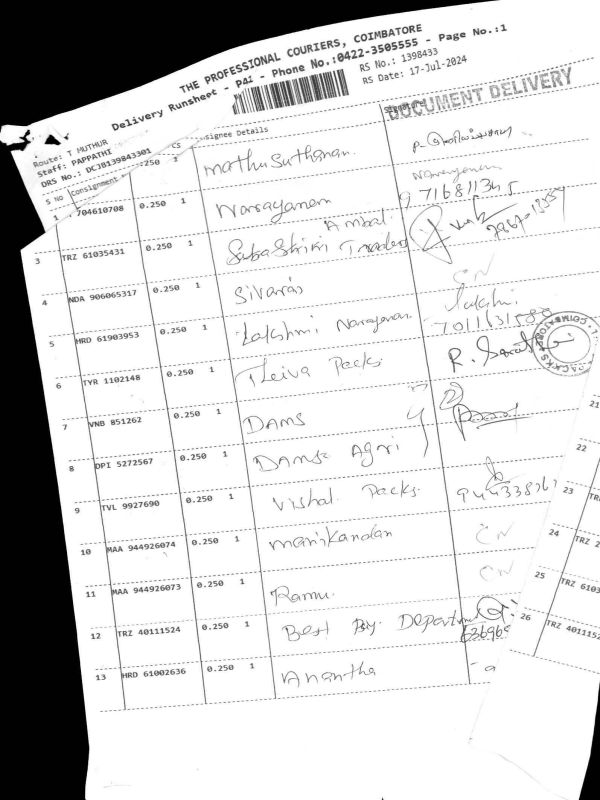 THE PROFESSIONAL COURIERS, COIMBATORE
Delivery Runsheet - P4i - Phone No.:0422-3505555 - Page No.:1
RS No.: 1398433
RS Date: 17-Jul-2024
DOCUMENT DELIVERY
Route: T MUTHUR
Staff: PAPPATHI
DRS No.: DCJB139843301
S No Consignment CS signee Details Signature
.250 1 mathu Suthanan
1 704610708 0.250 1 Narayanan Narayanan
9716811345
3 TRZ 61035431 0.250 1 Ambal
SubaShrini Traders
4 NDA 906065317 0.250 1 Sivaraj CN
5 HRD 61903953 0.250 1 Lakshmi Narayanan Lakshmi
6 TYR 1102148 0.250 1 Theiva Packs
COIMBATORE
7 VNB 851262 0.250 1 DAMS
8 DPI 5272567 0.250 1 DAMS Agri
9 TVL 9927690 0.250 1 Vishal Packs
10 MAA 944926074 0.250 1 manikandan CN
11 MAA 944926073 0.250 1 Ramu CN
12 TRZ 40111524 0.250 1 Best By Department
13 HRD 61002636 0.250 1 Anantha
21
22
23 TRZ
24 TRZ 2
25 TRZ 6103
26 TRZ 4011152